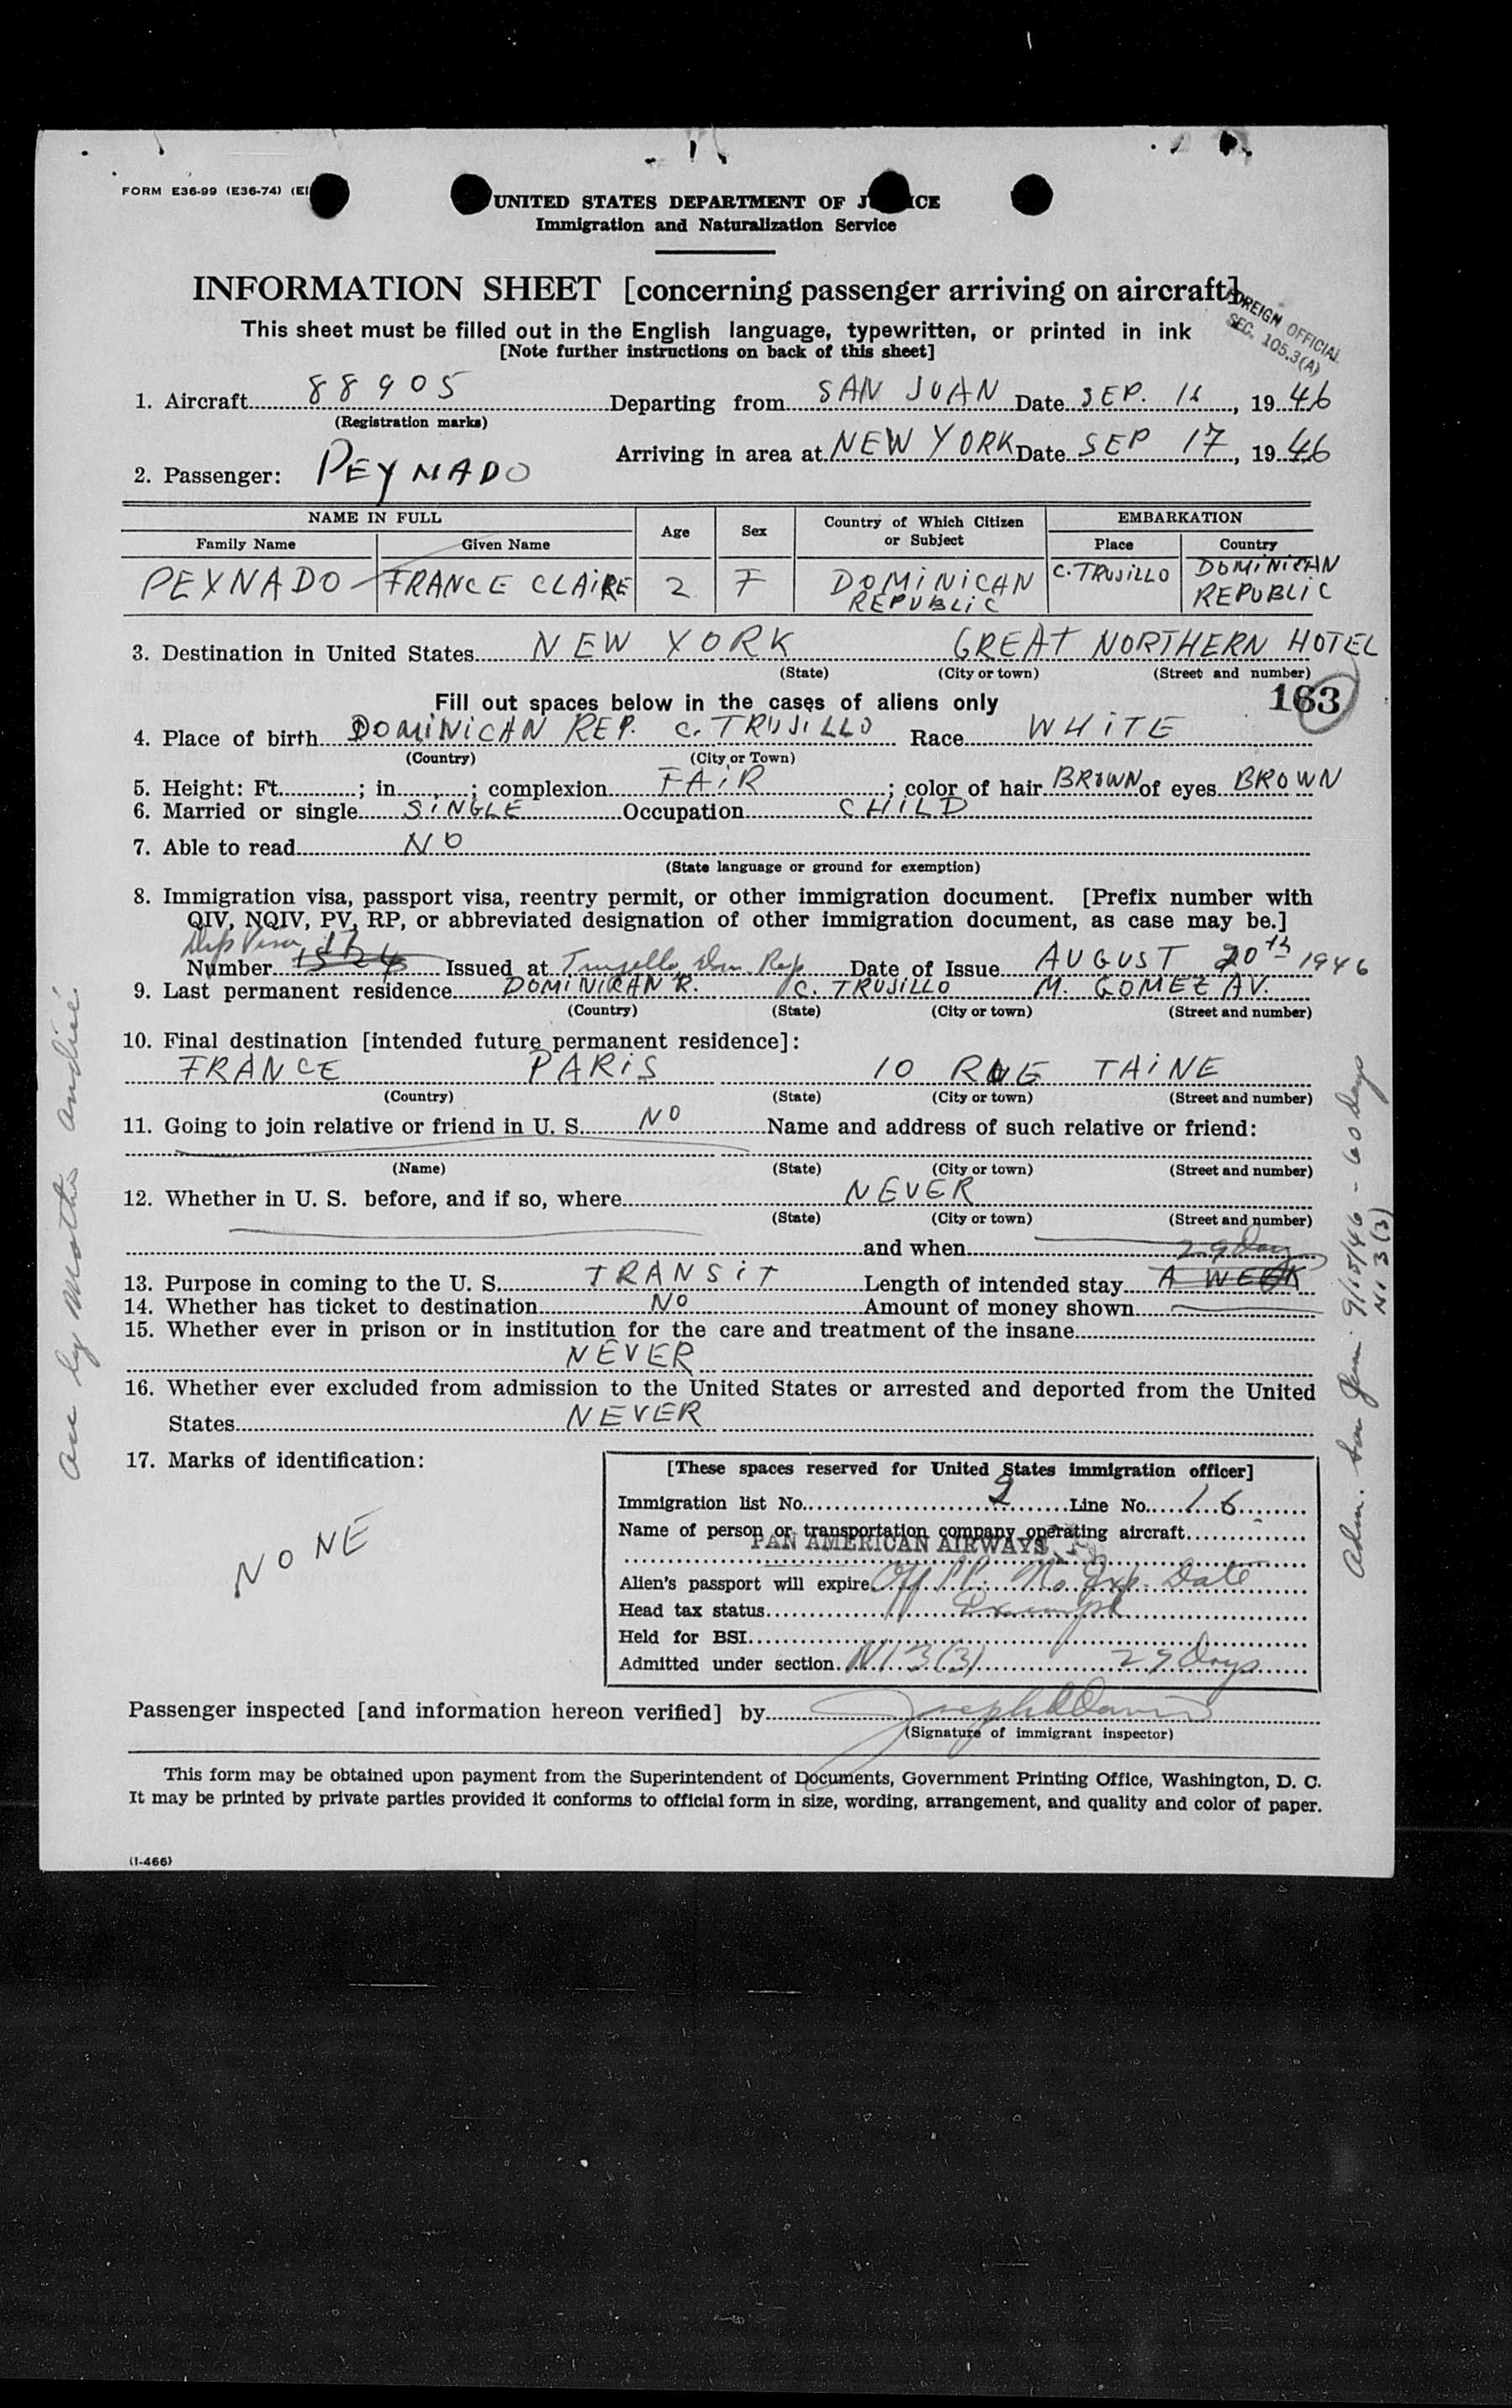 FORM E36-99 (E36-74) (E
UNITED STATES DEPARTMENT OF J ICE
Immigration and Naturalization Service
INFORMATION SHEET [concerning passenger arriving on aircraft]
FOREIGN OFFICIAL
SEC. 105.3(A)
This sheet must be filled out in the English language, typewritten, or printed in ink
[Note further instructions on back of this sheet]
1. Aircraft 88905 Departing from SAN JUAN Date SEP. 16, 1946
(Registration marks)
Arriving in area at NEW YORK Date SEP 17, 1946
2. Passenger: PEYNADO
NAME IN FULL Age Sex Country of Which Citizen or Subject EMBARKATION
Family Name Given Name Place Country
PEYNADO FRANCE CLAIRE 2 F DOMINICAN REPUBLIC C. TRUJILLO DOMINICAN REPUBLIC
3. Destination in United States NEW YORK GREAT NORTHERN HOTEL
(State) (City or town) (Street and number)
Fill out spaces below in the cases of aliens only 163
4. Place of birth DOMINICAN REP. C. TRUJILLO Race WHITE
(Country) (City or Town)
5. Height: Ft. ; in ; complexion FAIR ; color of hair BROWN of eyes BROWN
6. Married or single SINGLE Occupation CHILD
7. Able to read NO
(State language or ground for exemption)
8. Immigration visa, passport visa, reentry permit, or other immigration document. [Prefix number with
QIV, NQIV, PV, RP, or abbreviated designation of other immigration document, as case may be.]
Dip Visa
Number Issued at Trujillo, Dom. Rep Date of Issue AUGUST 20th 1946
9. Last permanent residence DOMINICAN R. C. TRUJILLO M. GOMEZ AV.
(Country) (State) (City or town) (Street and number)
10. Final destination [intended future permanent residence]:
FRANCE PARIS 10 RUE TAINE
(Country) (State) (City or town) (Street and number)
11. Going to join relative or friend in U. S. NO Name and address of such relative or friend:
(Name) (State) (City or town) (Street and number)
12. Whether in U. S. before, and if so, where NEVER
(State) (City or town) (Street and number)
and when 29 Days
13. Purpose in coming to the U. S. TRANSIT Length of intended stay A WEEK
14. Whether has ticket to destination NO Amount of money shown
15. Whether ever in prison or in institution for the care and treatment of the insane
NEVER
16. Whether ever excluded from admission to the United States or arrested and deported from the United
States NEVER
17. Marks of identification:
NONE
[These spaces reserved for United States immigration officer]
Immigration list No. 2 Line No. 16
Name of person or transportation company operating aircraft
PAN AMERICAN AIRWAYS
Alien's passport will expire Off PP. No Exp. Date
Head tax status Exempt
Held for BSI
Admitted under section N13(3) 29 Days
Passenger inspected [and information hereon verified] by
(Signature of immigrant inspector)
This form may be obtained upon payment from the Superintendent of Documents, Government Printing Office, Washington, D. C.
It may be printed by private parties provided it conforms to official form in size, wording, arrangement, and quality and color of paper.
(I-466)
Acc by Mother Andreé
Adm. San Juan 9/15/46 - 60 days
N1 3(3)